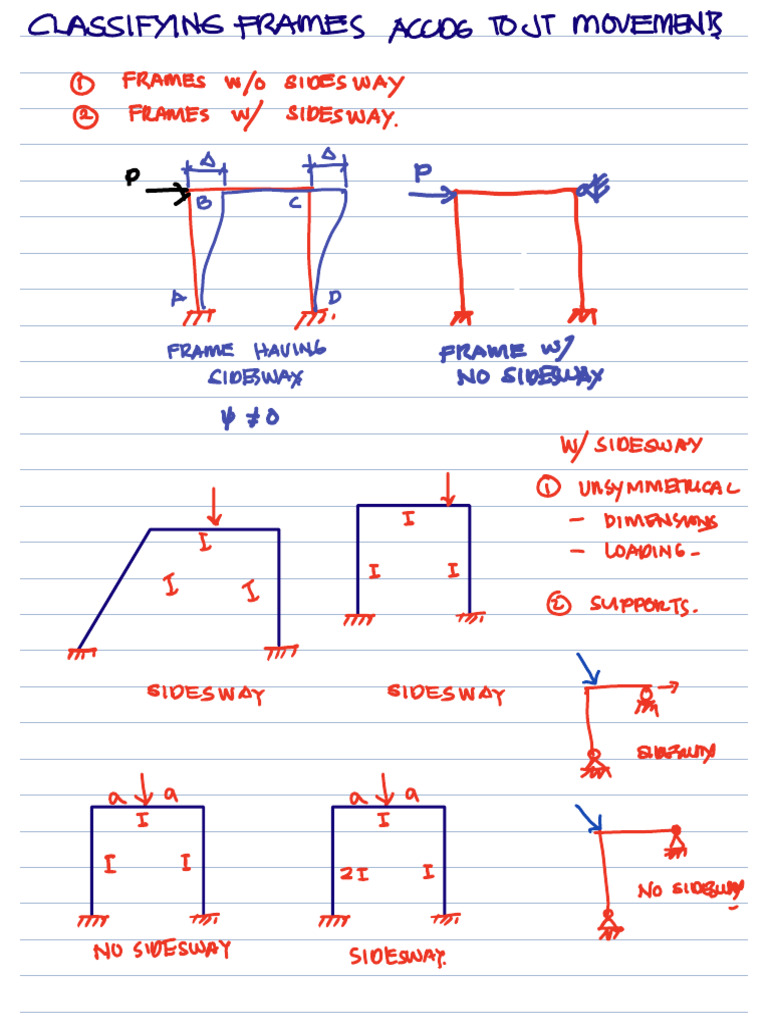 CLASSIFYING FRAMES ACCDG TO JT MOVEMENTS
① FRAMES W/O SIDESWAY
② FRAMES W/ SIDESWAY.
Δ Δ
P
B C
A D
P
FRAME HAVING
SIDESWAY
ψ ≠ 0
FRAME W/
NO SIDESWAY
W/ SIDESWAY
① UNSYMMETRICAL
- DIMENSIONS
- LOADING-
② SUPPORTS.
I
I I
SIDESWAY
I
I I
SIDESWAY
SIDESWAY
a a
I
I I
NO SIDESWAY
a a
I
2I I
SIDESWAY.
NO SIDESWAY